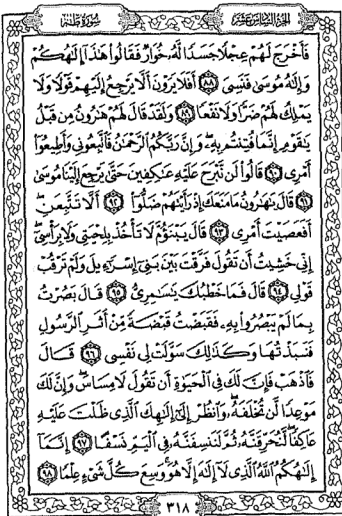 الجزء السادس عشر سورة طه
فَأَخْرَجَ لَهُمْ عِجْلًا جَسَدًا لَّهُۥ خُوَارٌ فَقَالُوا۟ هَٰذَآ إِلَٰهُكُمْ
وَإِلَٰهُ مُوسَىٰ فَنَسِىَ ٨٨ أَفَلَا يَرَوْنَ أَلَّا يَرْجِعُ إِلَيْهِمْ قَوْلًا وَلَا
يَمْلِكُ لَهُمْ ضَرًّا وَلَا نَفْعًا ٨٩ وَلَقَدْ قَالَ لَهُمْ هَٰرُونُ مِن قَبْلُ
يَٰقَوْمِ إِنَّمَا فُتِنتُم بِهِۦ وَإِنَّ رَبَّكُمُ ٱلرَّحْمَٰنُ فَٱتَّبِعُونِى وَأَطِيعُوٓا۟
أَمْرِى ٩٠ قَالُوا۟ لَن نَّبْرَحَ عَلَيْهِ عَٰكِفِينَ حَتَّىٰ يَرْجِعَ إِلَيْنَا مُوسَىٰ
٩١ قَالَ يَٰهَٰرُونُ مَا مَنَعَكَ إِذْ رَأَيْتَهُمْ ضَلُّوٓا۟ ٩٢ أَلَّا تَتَّبِعَنِ
أَفَعَصَيْتَ أَمْرِى ٩٣ قَالَ يَبْنَؤُمَّ لَا تَأْخُذْ بِلِحْيَتِى وَلَا بِرَأْسِىٓ
إِنِّى خَشِيتُ أَن تَقُولَ فَرَّقْتَ بَيْنَ بَنِىٓ إِسْرَٰٓءِيلَ وَلَمْ تَرْقُبْ
قَوْلِى ٩٤ قَالَ فَمَا خَطْبُكَ يَٰسَٰمِرِىُّ ٩٥ قَالَ بَصُرْتُ
بِمَا لَمْ يَبْصُرُوا۟ بِهِۦ فَقَبَضْتُ قَبْضَةً مِّنْ أَثَرِ ٱلرَّسُولِ
فَنَبَذْتُهَا وَكَذَٰلِكَ سَوَّلَتْ لِى نَفْسِى ٩٦ قَالَ
فَٱذْهَبْ فَإِنَّ لَكَ فِى ٱلْحَيَوٰةِ أَن تَقُولَ لَا مِسَاسَ وَإِنَّ لَكَ
مَوْعِدًا لَّن تُخْلَفَهُۥ وَٱنظُرْ إِلَىٰٓ إِلَٰهِكَ ٱلَّذِى ظَلْتَ عَلَيْهِ
عَاكِفًا لَّنُحَرِّقَنَّهُۥ ثُمَّ لَنَنسِفَنَّهُۥ فِى ٱلْيَمِّ نَسْفًا ٩٧ إِنَّمَآ
إِلَٰهُكُمُ ٱللَّهُ ٱلَّذِى لَآ إِلَٰهَ إِلَّا هُوَ وَسِعَ كُلَّ شَىْءٍ عِلْمًا ٩٨
٣١٨